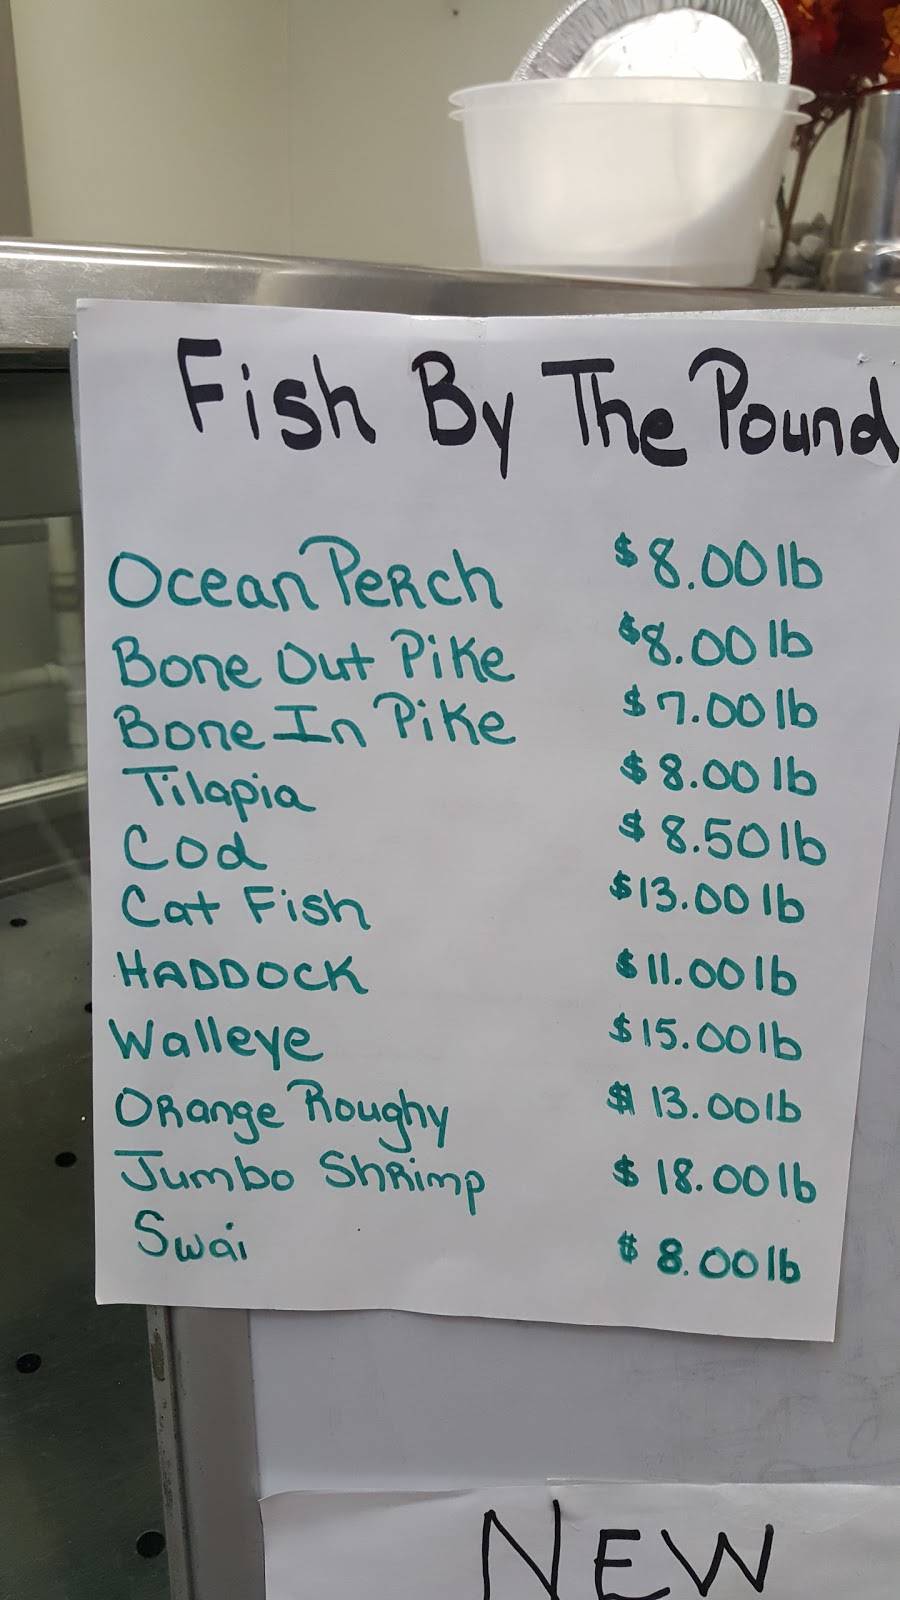 Fish By The Pound
Ocean Perch $8.00 lb
Bone Out Pike $8.00 lb
Bone In Pike $7.00 lb
Tilapia $8.00 lb
Cod $8.50 lb
Cat Fish $13.00 lb
HADDOCK $11.00 lb
Walleye $15.00 lb
Orange Roughy $13.00 lb
Jumbo Shrimp $18.00 lb
Swai $8.00 lb
NEW